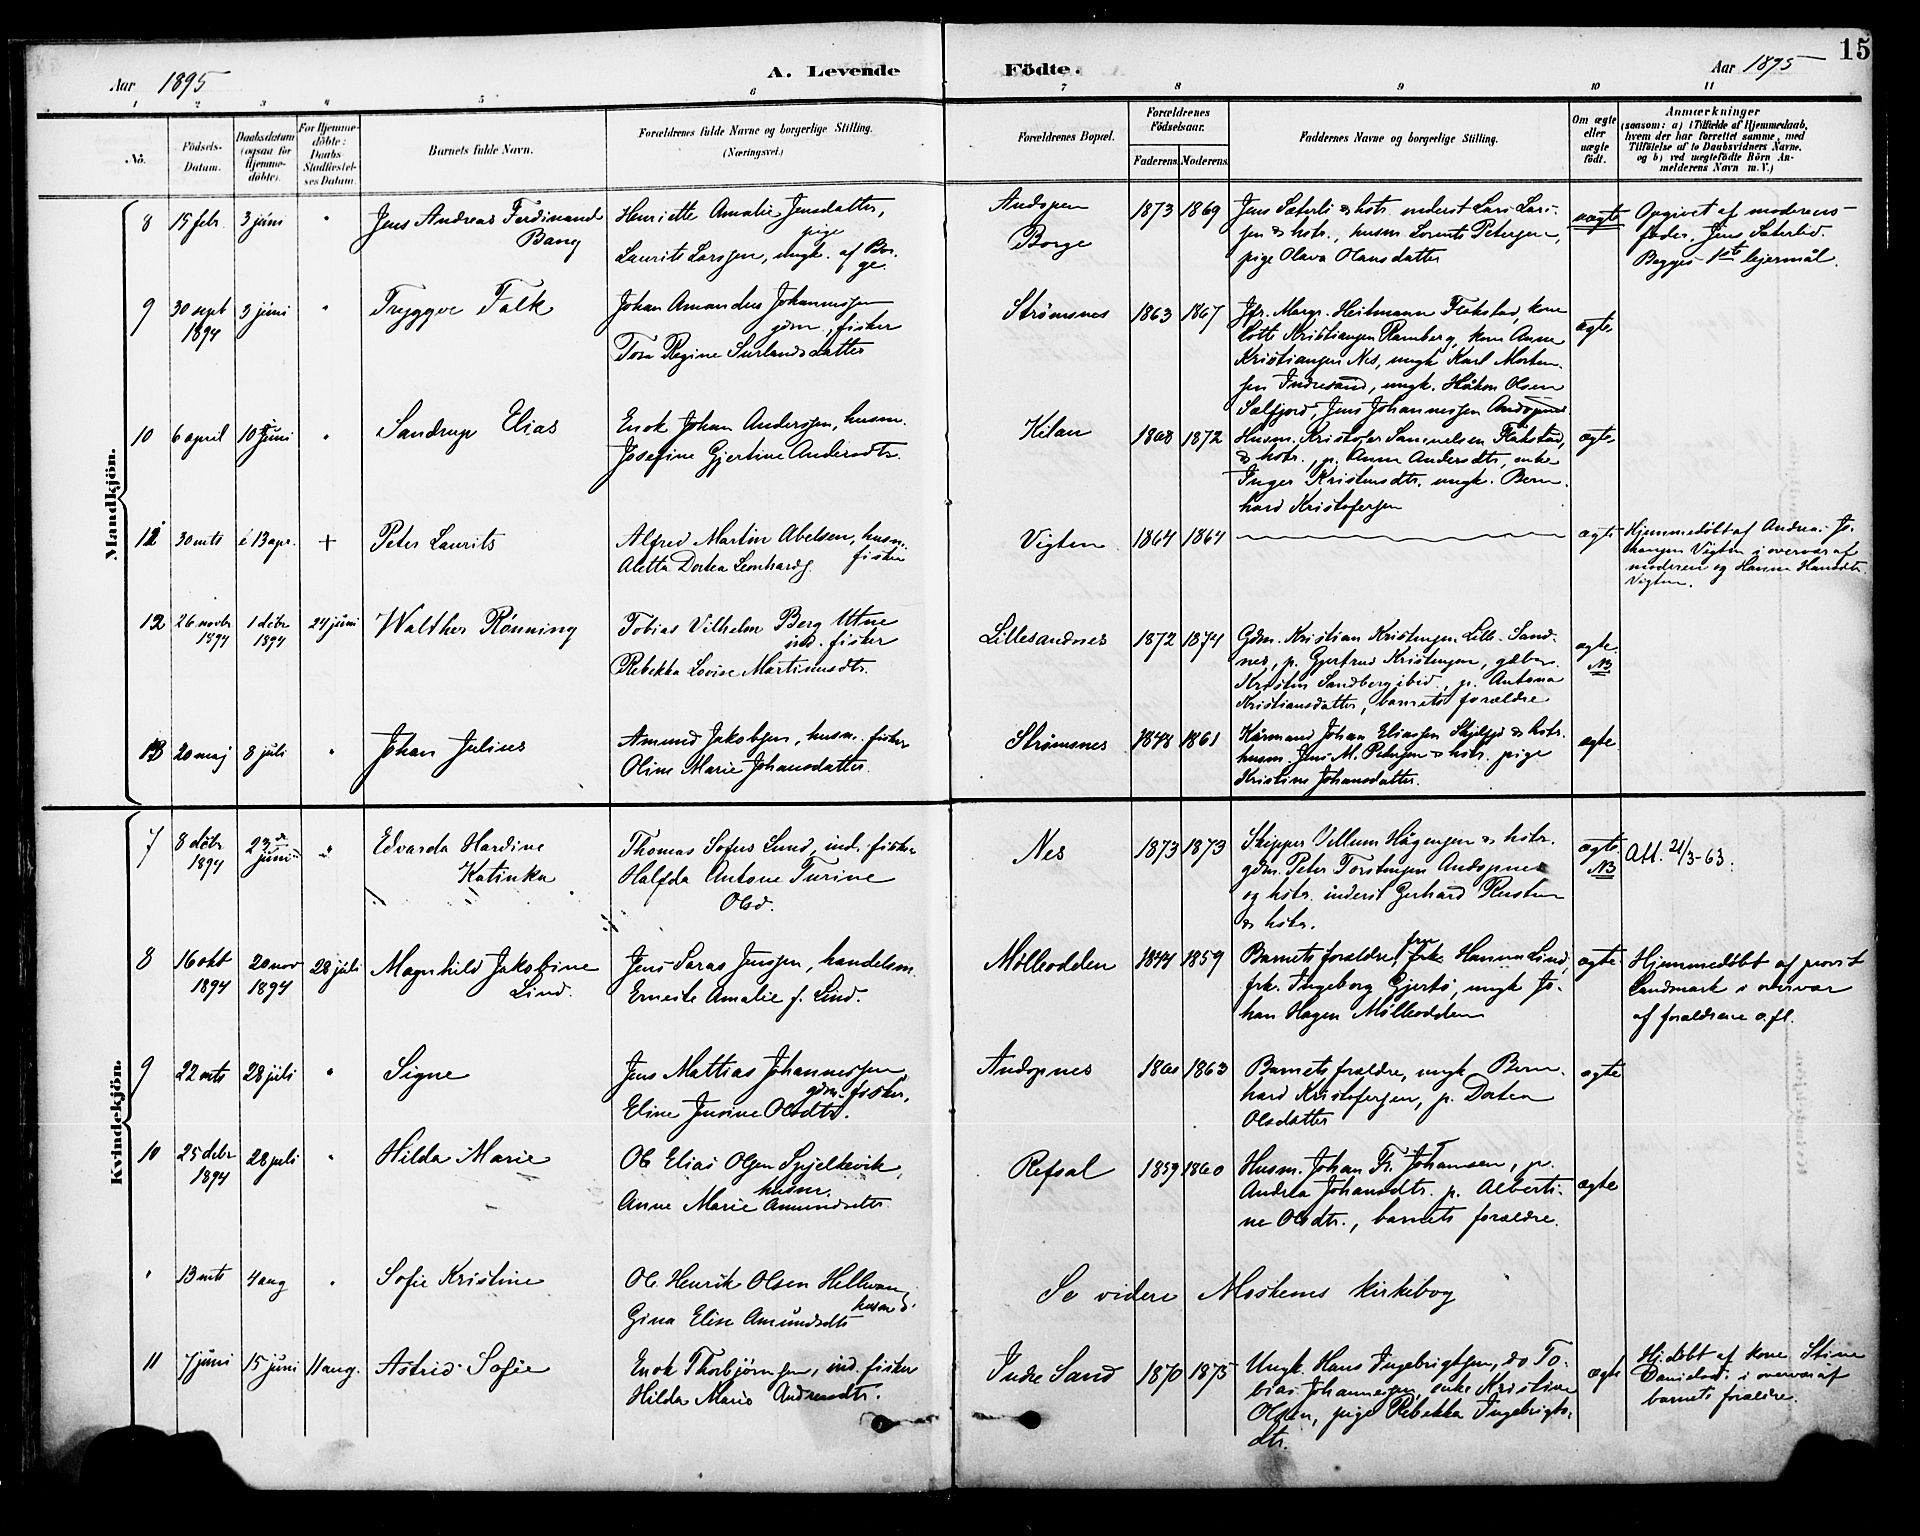 Aar 1895
A. Levende Födte.
Aar 1895
15
1 2 3 4 5 6 7 8 9 10 11
No.
Födsels-
Datum.
Daabsdatum
(ogsaa for
Hjemme-
döbte).
For Hjemme-
döbte:
Daabs
Stadfæstel-
ses Datum.
Barnets fulde Navn.
Forældrenes fulde Navne og borgerlige Stilling.
(Næringsvei.)
Forældrenes Bopæl.
Forældrenes
Födselsaar.
Faderens. Moderens.
Faddernes Navne og borgerlige Stilling.
Om ægte
eller
uægte
födt.
Anmærkninger
(saasom: a) i Tilfælde af Hjemmedaab,
hvem der har forrettet samme, med
Tilföielse af to Daabsvidners Navne,
og b) ved uægtefödte Börn An-
melderens Navn m. V.)
Mandkjön.
8 15 febr. 3 juni " Jens Andreas Ferdinand
Bang
Henriette Amalie Jensdatter,
pige
Laurits Larssen, ungk. af Bor-
ge.
Andopen
Borge
1873 1869
Jens Sæterli & hstr. inderst Lars Lars-
sen & hstr., husm. Lorents Petersen,
pige Olava Olausdatter
uægte
Opgivet af moderens
fader, Jens Sæterlid.
Begges 1ste lejermål.
9 30 sept
1894
3 juni " Tryggve Falk
Johan Amandus Johannessen
gdm., fisker
Tora Regine Surlandsdatter
Strømsnes
1863 1867
Jfr. Margr. Heitmann Flakstad, kone
Lotte Kristiansen Ramberg, kone Anne
Kristiansen Nes, ungk. Karl Morten-
sen Indresand, ungk. Håkon Olsen
Selfjord, Jens Johannessen Andopnes
ægte
10 6 april 10 juni " Sandrup Elias
Enok Johan Anderssen, husm.
Josefine Gjertine Andersdtr.
Kilan
1868 1872
Husm. Kristofer Samuelsen Flakstad,
& hstr., p. Anna Andersdtr, enke
Inger Kristensdtr. ungk. Bern-
hard Kristofersen
ægte
11 30 mts 13 apr. + Peter Laurits
Alfred Martin Abelsen, husm.
fisker
Aletta Dortea Leonhards.
Vigten
1864 1864
ægte
Hjemmedøbt af Andrea Jo-
hansen Vigten i overvær af
moderen og Hanna Hansdtr.
Vigten.
12 26 novbr
1894
1 debr
1894
24 juni
Walther Rønning
Tobias Vilhelm Berg Utne
ind. fisker
Rebekka Lovise Martinusdtr.
Lillesandnes
1872 1874
Gdm. Kristian Kristensen Lille-Sand-
nes, p. Gjertrud Kristensen, gdbr.
Kristen Sandberg ibid, p. Antona
Kristiansdatter, barnets forældre
ægte
NB
13 20 maj 8 juli " Johan Julius
Amund Jakobsen, husm. fisker
Oline Marie Johansdatter.
Strømsnes
1848 1861
Kårmand Johan Eliassen Skjelfjd & hstr.
husm. Jens M. Petersen & hstr. pige
Kristine Johansdatter.
ægte
Kvindekjön.
7 8 debr
1894
23de
juni
" Edvarda Hardine
Katinka
Thomas Sofus Lund, ind. fisker
Halfda Antone Turine
Olsd.
Nes
1873 1873
Skipper Vellum Hågensen & hstr.
gdm. Peter Torstensen Andopnes
og hstr. inderst Gerhard Kristen
& hstr.
ægte
NB
Att. 21/3-63.
8 16 okt
1894
20 nov
1894
28 juli
Magnhild Jakobine
Lind.
Jens Saras Jenssen, handelsm.
Erneste Amalie f. Lind.
Mølleodden
1844 1859
Barnets forældre, fru Hanna Lind,
frk. Ingeborg Gjertsø, ungk Jo-
han Hagen Mølleodden
ægte
Hjemmedøbt af provst
Landmark i overvær
af forældrene o.fl.
9 22 mts 28 juli " Signe
Jens Mattias Johannessen
gdm. fisker,
Eline Jusine Olsdtr.
Andopnes
1860 1863
Barnets forældre, ungk Bern-
hard Kristofersen, p. Dortea
Olsdatter
ægte
10 25 debr
1894
28 juli " Hilda Marie
Ole Elias Olsen Skjelkevik,
husm.
Anne Marie Amundsdtr.
Refsal
1859 1860
Husm. Johan Fr. Johansen, p.
Andrea Johansdtr. p. Alberti-
ne Olsdtr., barnets forældre.
ægte
" 13 mts 4 aug " Sofie Kristine
Ole Henrik Olsen Hellvan
husmd.
Gina Elise Amundsdtr
Se videre Moskenes kirkebog
11 7 juni 15 juni 11 aug. Astrid Sofie
Enok Thorbjørnsen, ind. fisker
Hilda Marie Andreasdtr.
Indre Sand
1870 1875
Ungk. Hans Ingebrigtsen, do To-
bias Johannesen, enke Kristine
Olsen, pige Rebekka Ingebrigts-
dtr.
ægte
Hj.døbt af kone Stine
Danielsd. i overvær af
barnets forældre.